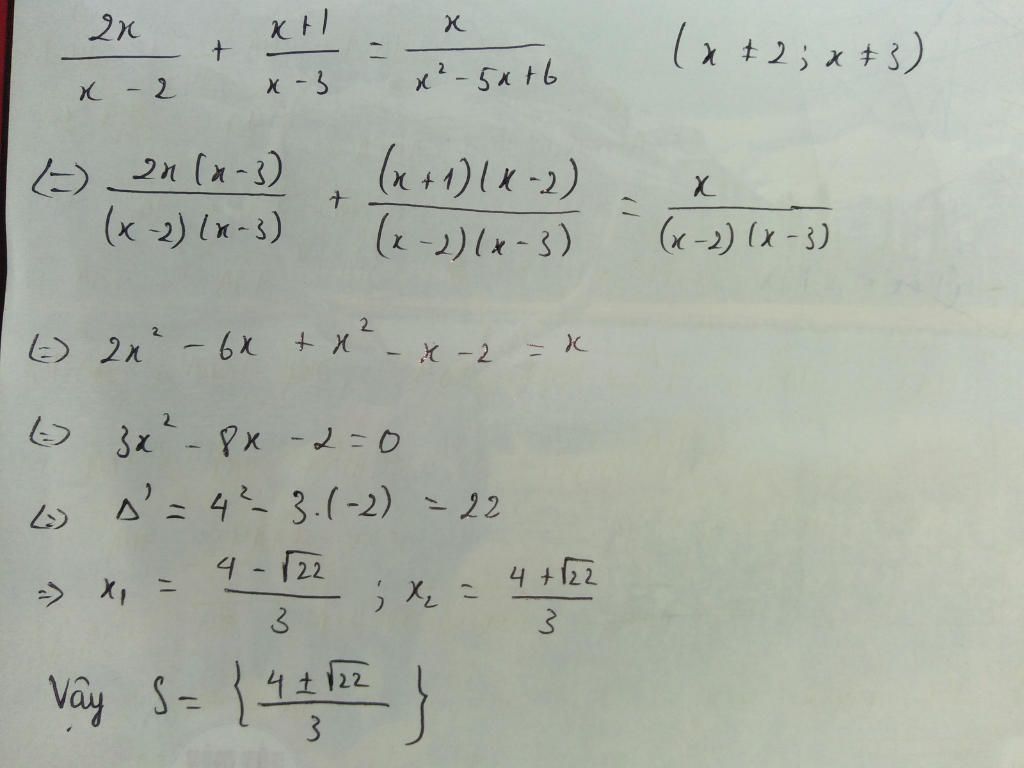 2x/(x - 2) + (x+1)/(x - 3) = x/(x² - 5x + 6) (x ≠ 2; x ≠ 3)
(=) 2x(x-3)/((x-2)(x-3)) + (x+1)(x-2)/((x-2)(x-3)) = x/((x-2)(x-3))
(=) 2x² - 6x + x² - x - 2 = x
(=) 3x² - 8x - 2 = 0
(=) Δ' = 4² - 3.(-2) = 22
=> x₁ = (4 - √22)/3 ; x₂ = (4 + √22)/3
Vậy S = {(4 ± √22)/3}